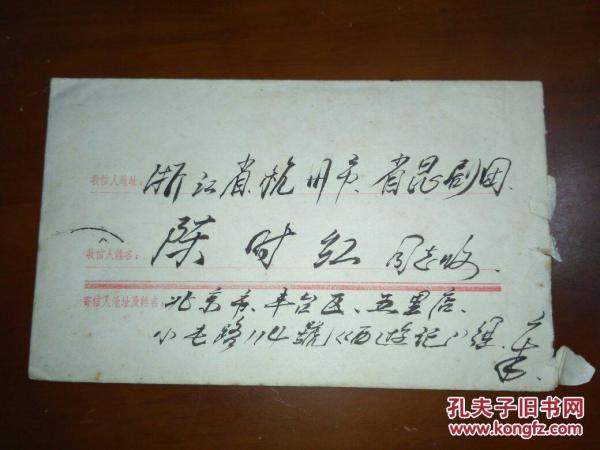 收信人地址：浙江省杭州市、省昆剧团.
收信人姓名：陈时红 同志收.
寄信人地址及姓名：北京市、丰台区、五里店、
小屯路114號《西游记》组.
孔夫子旧书网
www.kongfz.com